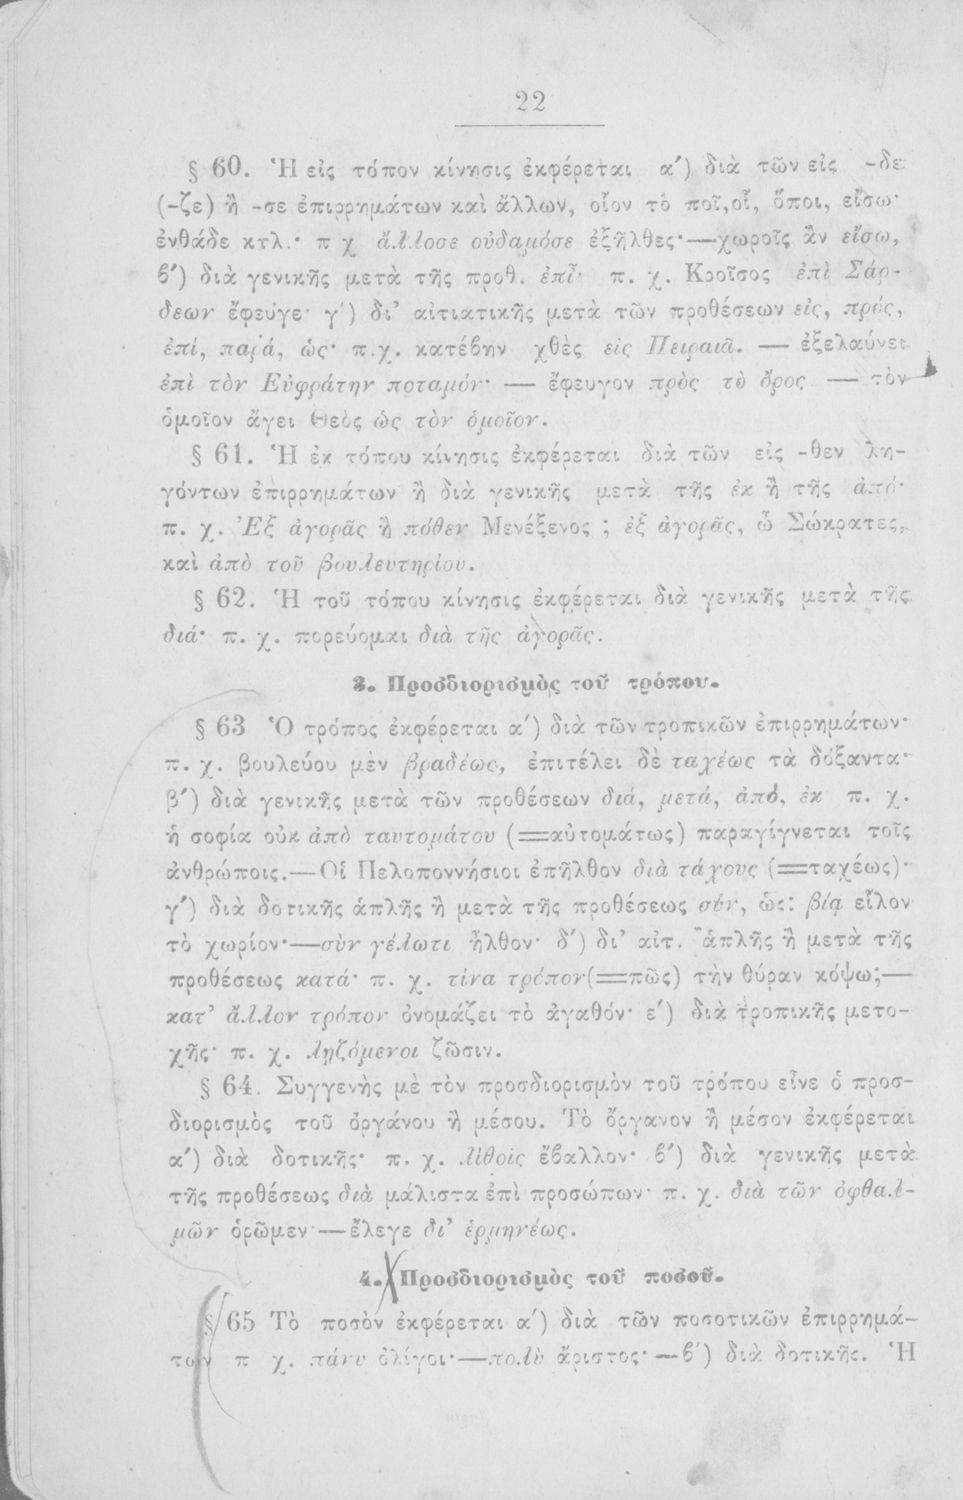 22
§ 60. Ἡ εἰς τόπον κίνησις ἐκφέρεται α΄) διὰ τῶν εἰς -δε
(-ζε) ἢ -σε ἐπιρρημάτων καὶ ἄλλων, οἷον τὸ ποῖ, οἷ, ὅποι, εἴσω·
ἐνθάδε κτλ.· π χ ἄλλοσε οὐδαμόσε ἐξῆλθες·—χωροῖς ἂν εἴσω,
β΄) διὰ γενικῆς μετὰ τῆς προθ. ἐπί· π. χ. Κροῖσος ἐπὶ Σάρ-
δεων ἔφευγε· γ΄) δι’ αἰτιατικῆς μετὰ τῶν προθέσεων εἰς, πρός,
ἐπί, παρά, ὡς· π.χ. κατέβην χθὲς εἰς Πειραιᾶ. — ἐξελαύνει
ἐπὶ τὸν Εὐφράτην ποταμόν· — ἔφευγον πρὸς τὸ ὄρος — τὸν
ὁμοῖον ἄγει Θεὸς ὡς τὸν ὁμοῖον.
§ 61. Ἡ ἐκ τόπου κίνησις ἐκφέρεται διὰ τῶν εἰς -θεν λη-
γόντων ἐπιρρημάτων ἢ διὰ γενικῆς μετὰ τῆς ἐκ ἢ τῆς ἀπό·
π. χ. Ἐξ ἀγορᾶς ἢ πόθεν Μενέξενος ; ἐξ ἀγορᾶς, ὦ Σώκρατες,
καὶ ἀπὸ τοῦ βουλευτηρίου.
§ 62. Ἡ τοῦ τόπου κίνησις ἐκφέρεται διὰ γενικῆς μετὰ τῆς
διά· π. χ. πορεύομαι διὰ τῆς ἀγορᾶς.
3. Προσδιορισμὸς τοῦ τρόπου.
§ 63 Ὁ τρόπος ἐκφέρεται α΄) διὰ τῶν τροπικῶν ἐπιρρημάτων·
π. χ. βουλεύου μὲν βραδέως, ἐπιτέλει δὲ ταχέως τὰ δόξαντα·
β΄) διὰ γενικῆς μετὰ τῶν προθέσεων διά, μετά, ἀπό, ἐκ π. χ.
ἡ σοφία οὐκ ἀπὸ ταυτομάτου (=αὐτομάτως) παραγίγνεται τοῖς
ἀνθρώποις.—Οἱ Πελοποννήσιοι ἐπῆλθον διὰ τάχους (=ταχέως)·
γ΄) διὰ δοτικῆς ἁπλῆς ἢ μετὰ τῆς προθέσεως σύν, ὡς: βίᾳ εἷλον
τὸ χωρίον·—σὺν γέλωτι ἦλθον· δ΄) δι’ αἰτ. ἁπλῆς ἢ μετὰ τῆς
προθέσεως κατά· π. χ. τίνα τρόπον(=πῶς) τὴν θύραν κόψω;—
κατ’ ἄλλον τρόπον ὀνομάζει τὸ ἀγαθόν· ε΄) διὰ τροπικῆς μετο-
χῆς· π. χ. ληζόμενοι ζῶσιν.
§ 64. Συγγενὴς μὲ τὸν προσδιορισμὸν τοῦ τρόπου εἶνε ὁ προσ-
διορισμὸς τοῦ ὀργάνου ἢ μέσου. Τὸ ὄργανον ἢ μέσον ἐκφέρεται
α΄) διὰ δοτικῆς· π. χ. λίθοις ἔβαλλον· β΄) διὰ γενικῆς μετὰ
τῆς προθέσεως διὰ μάλιστα ἐπὶ προσώπων· π. χ. διὰ τῶν ὀφθαλ-
μῶν ὁρῶμεν·—ἔλεγε δι’ ἑρμηνέως.
4. Προσδιορισμὸς τοῦ ποσοῦ.
§ 65 Τὸ ποσὸν ἐκφέρεται α΄) διὰ τῶν ποσοτικῶν ἐπιρρημά-
των π χ. πάνυ ὀλίγοι·—πολὺ ἄριστος·—β΄) διὰ δοτικῆς. Ἡ